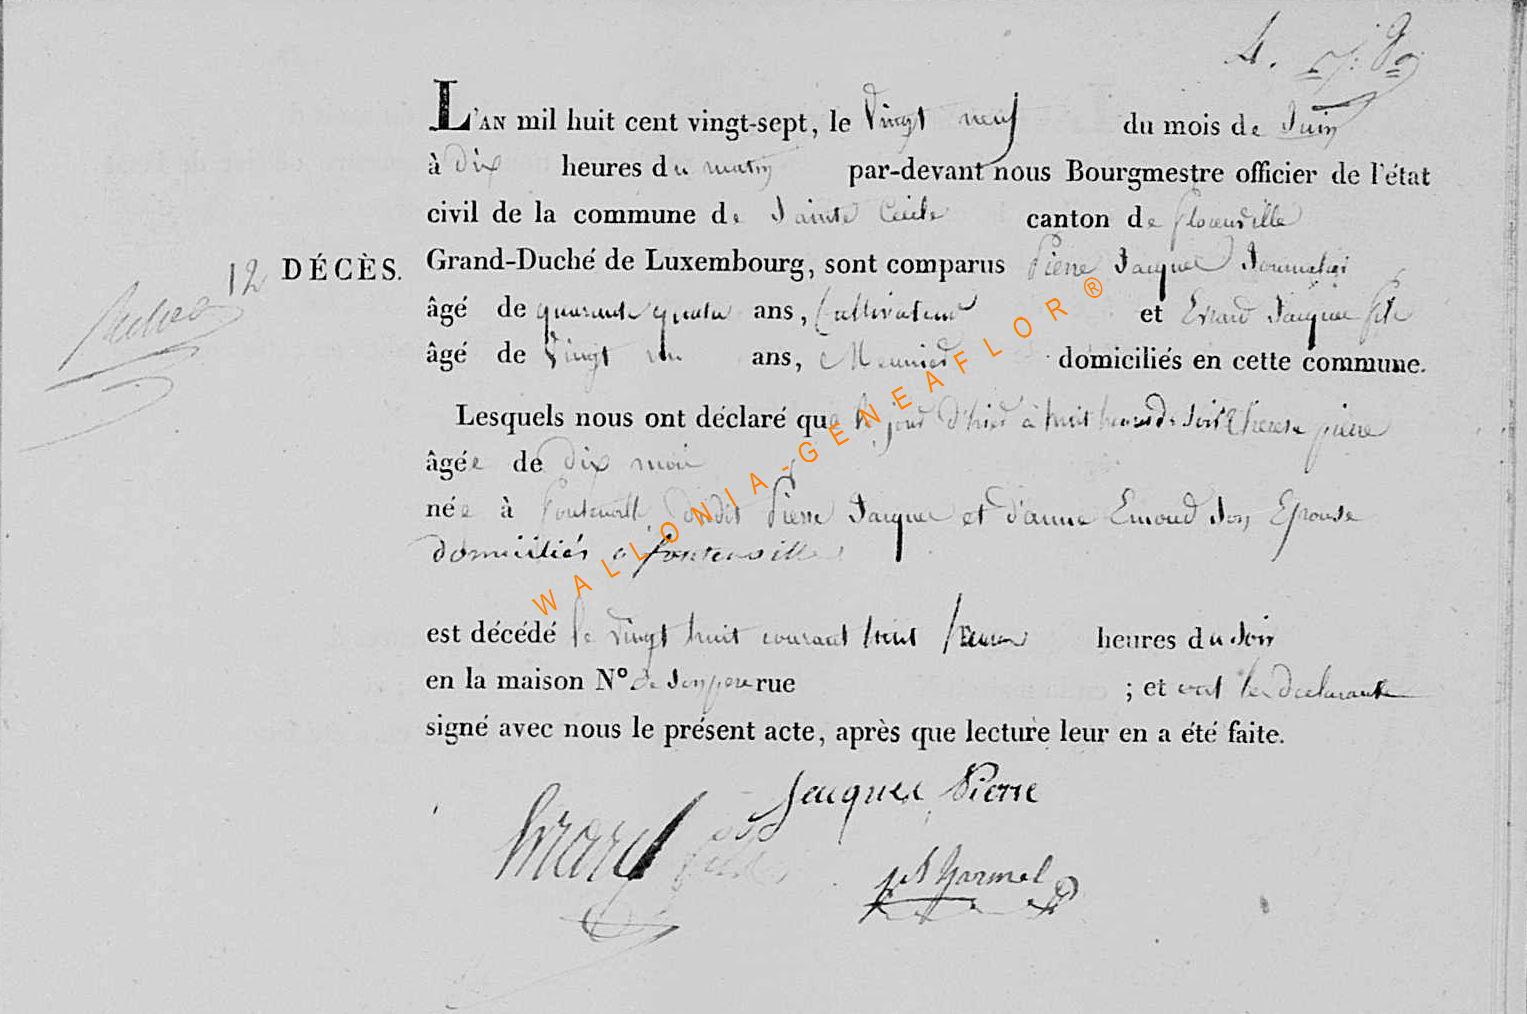 4.
L'AN mil huit cent vingt-sept, le vingt neuf du mois de Juin
à dix heures du matin par-devant nous Bourgmestre officier de l'état
civil de la commune de Sainte Cecile canton de Florenville
12 DÉCÈS.
Grand-Duché de Luxembourg, sont comparus Pierre Jacques
âgé de quarante quatre ans, Cultivateur et Erard Jacques
âgé de vingt un ans, Meunier domiciliés en cette commune.
Lesquels nous ont déclaré que le jour d'hier à huit heures du soir therese pierre
âgée de dix mois
née à Fontenoille, dudit Pierre Jacques et d'anne Emond son Epouse
domiciliés a fontenoille
est décédé le vingt huit courant huit heures heures du soir
en la maison N° de son pere rue ; et ont les declarants
signé avec nous le présent acte, après que lecture leur en a été faite.
Jacques Pierre
Erard
WALLONIA-GENEAFLOR®